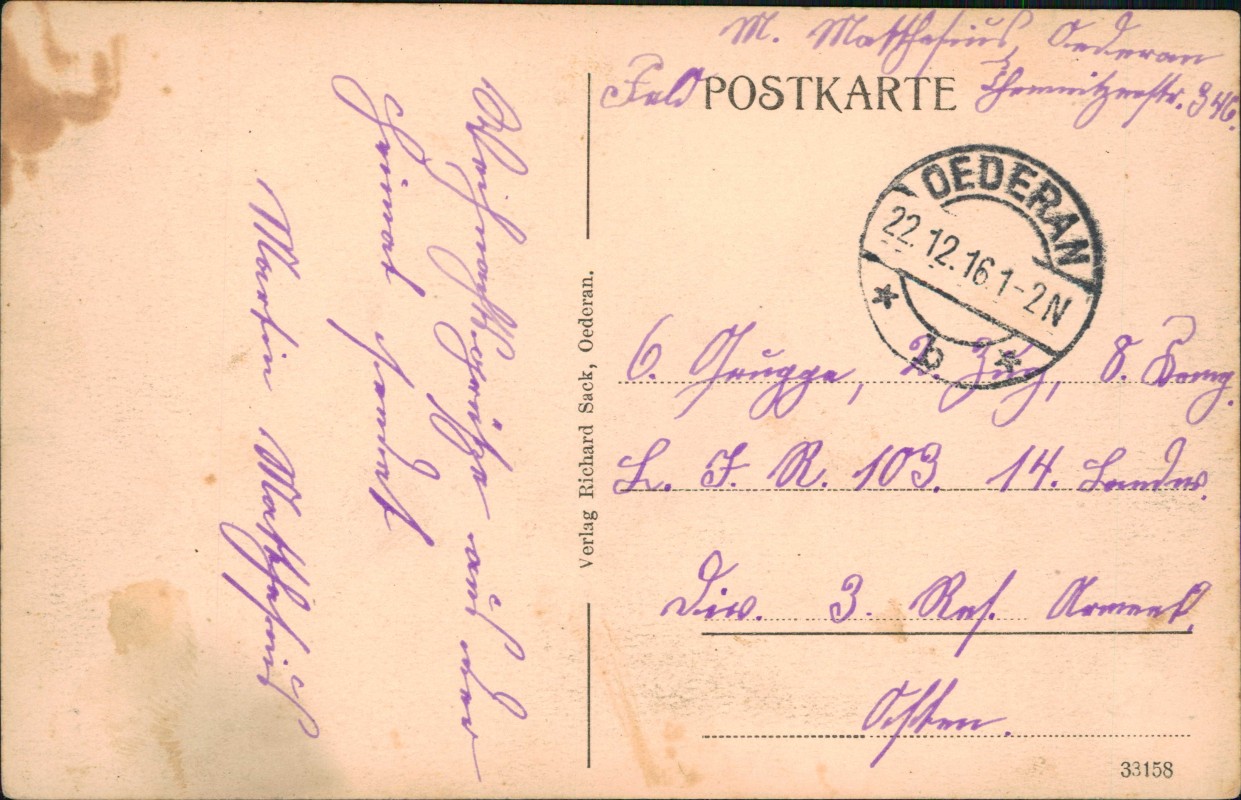 M. Matthesius, Oederan
Chemnitzerstr. 346.
Feld POSTKARTE
OEDERAN
22.12.16 1-2N
* b *
6. Gruppe, 2. Zug, 8. Komp.
L. I. R. 103. 14. Landw.
Div. 3. Res. Armeek.
Osten.
33158
Verlag Richard Sack, Oederan.
Weihnachtsgrüße aus der
Heimat sendet
Martin Matthesius